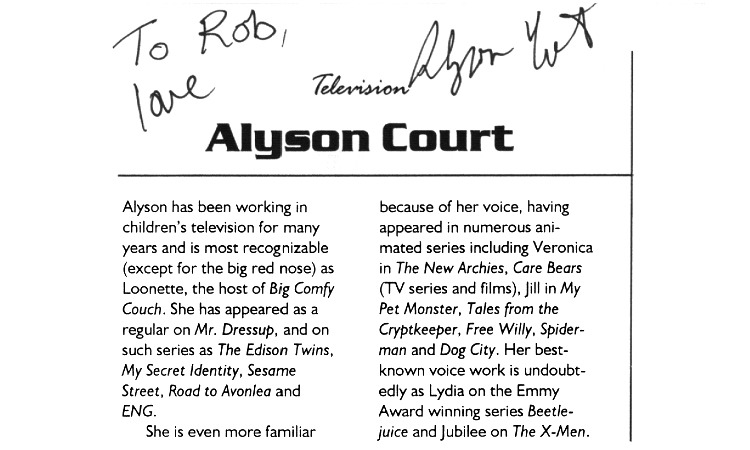 To Rob,
love
Alyson Court
Television
Alyson Court
Alyson has been working in
children's television for many
years and is most recognizable
(except for the big red nose) as
Loonette, the host of Big Comfy
Couch. She has appeared as a
regular on Mr. Dressup, and on
such series as The Edison Twins,
My Secret Identity, Sesame
Street, Road to Avonlea and
ENG.
She is even more familiar
because of her voice, having
appeared in numerous ani-
mated series including Veronica
in The New Archies, Care Bears
(TV series and films), Jill in My
Pet Monster, Tales from the
Cryptkeeper, Free Willy, Spider-
man and Dog City. Her best-
known voice work is undoubt-
edly as Lydia on the Emmy
Award winning series Beetle-
juice and Jubilee on The X-Men.